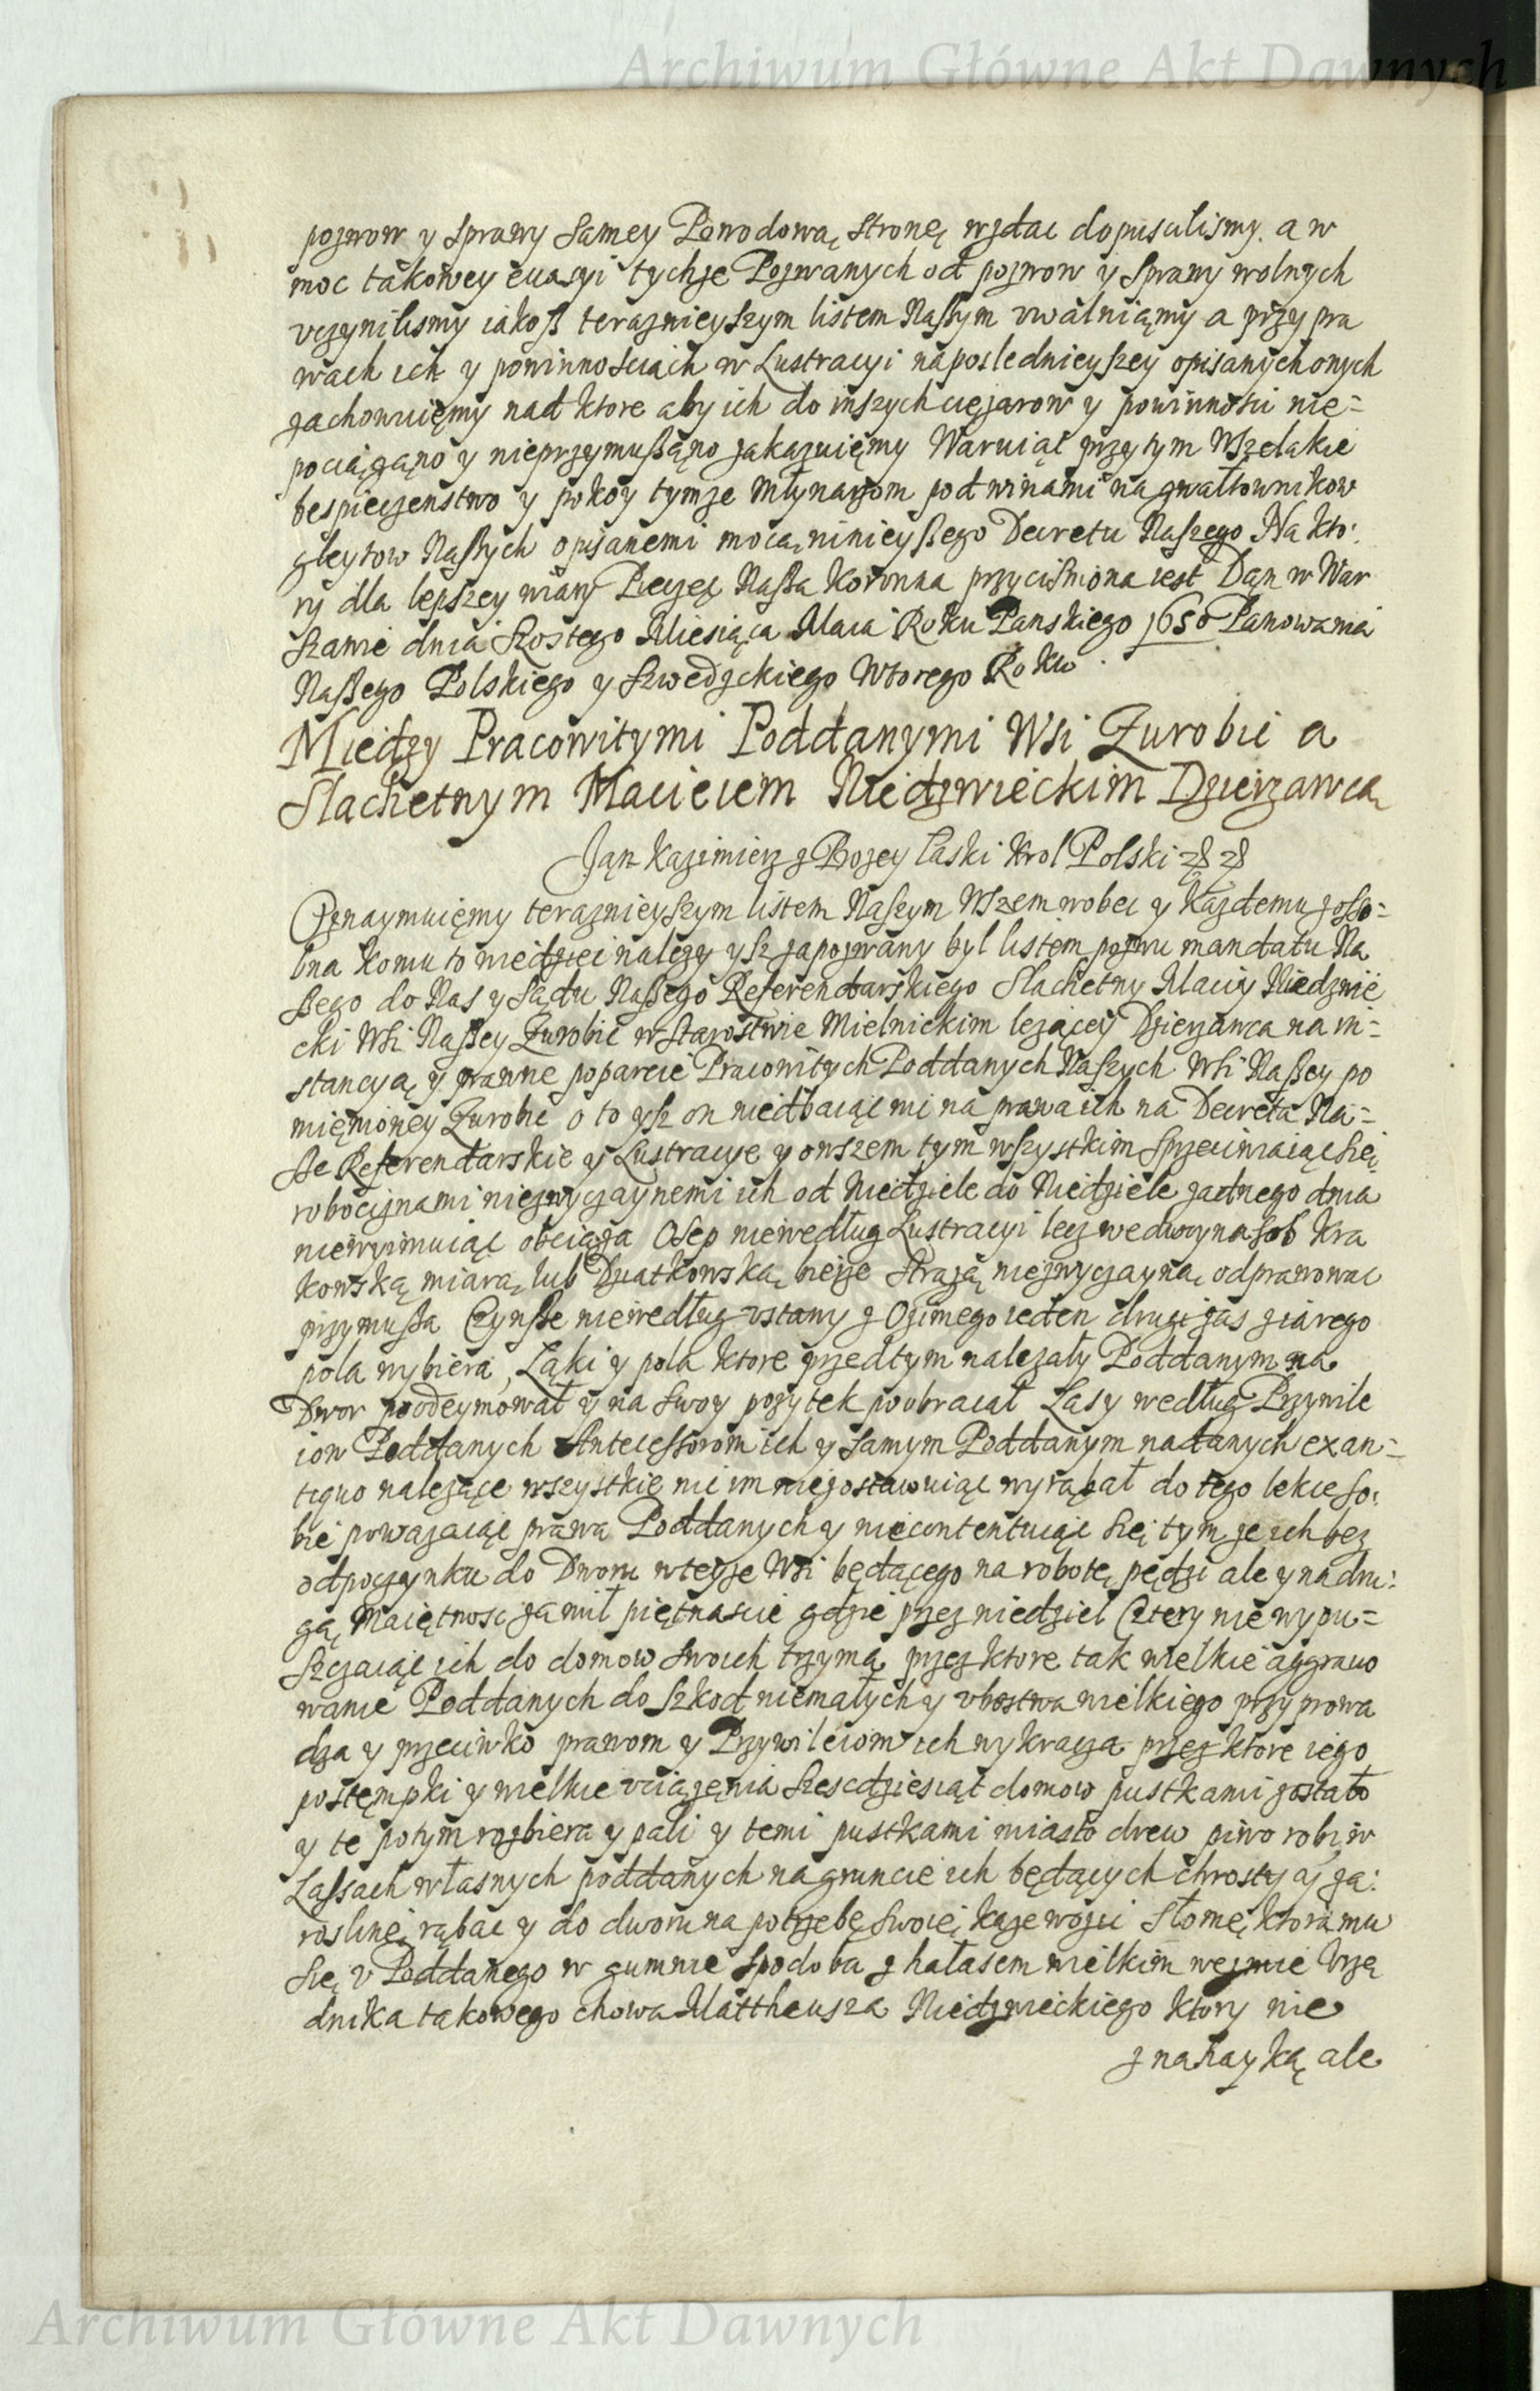 Archiwum Główne Akt Dawnych
pozwow y sprawy samey Powodową stronę wzdac dopuscilismy. a w
moc takowey evasyi tychze Pozwanych od pozwow y sprawy wolnych
vczynilismy iakoß teraznieyszym listem Naßym vwalniąmy a przy pra
wach ich y powinnosciach w Lustracyi naposlednieyszey opisanych onych
zachowuięmy nad ktore aby ich do inszych cięzarow y powinnosci nie=
pociągąno y nieprzymußąno zakazuięmy Waruiąc przytym Wszelakie
bespieczenstwo y pokoy tymze Młynarzom pod winami na gwałtownikow
gleytow Naßych opisanemi mocą ninieyßego Decretu Naszego Na kto:
ry dla lepszey wiary Pieczęc Naßa Koronna przycisniona iest Dąn w War
szawie dnia Szostego Miesiąca Maia Roku Panskiego 1650 Panowania
Naßego Polskiego y Szwedzckiego Wtorego Roku.
Miedzy Pracowitymi Poddanymi Wsi Zurobic a
Slachetnym Macieiem Niedzwieckim Dzierzawcą
Ją̨n Kazimierz z Bozey Łaski Krol Polski
Oznaymuięmy teraznieyszym listem Naszym Wszem wobec y kazdemu zosso=
bna komu to wiedziec nalezy ysz zapozwany był listem pozwu mandatu Na
ßego do Nas y Sądu Naßego Referendarskiego Slachetny Maciy Niedzwie
cki Wsi Naßey Zurobic w starostwie Mielnickim lezącey Dzierzawca na in=
stancyą y prawne poparcie Pracowitych Poddanych Naszych Wsi Naßey po
mięnioney Zurobic o to ysz on niedbaiąc nic na prawa ich na Decreta Na=
ße Referendarskie y Lustracye y owszem tym wszystkim sprzeciwiaiąc się
robociznami niezwyczaynemi ich od Niedziele do Niedziele zadnego dnia
niewyimuiąc obciąza Osep niewedług Lustracyi lecz wedwoynasob Kra
kowską miarą lub Dziatkowską bierze Strazą niezwyczayną odprawowac
przymußa Czynße niewedług vstawy z Ozimego ieden drugi zas z iarego
pola wybiera, Łąki y pola ktore przedtym nalezały Poddanym na
Dwor poodeymował y na swoy pozytek poobracał Lasy według Przywile
iow Poddanych Antecessorom ich y samym Poddanym nadanych ex an=
tiquo nalezące wszystkie nic im niezostawuiąc wyrąbał do tego lekce so:
bie powazaiąc prawa Poddanych y niecontentuiąc się tym ze ich bez
odpoczynku do Dworu wteyze Wsi będącego na robotę pędzi ale y na dru:
gą Maiętnosc za mil piętnascie gdzie przez niedziel Cztery nie wypu=
szczaiąc ich do domow swoich trzyma przez ktore tak wielkie aggrauo
wanie Poddanych do szkod niemałych y vbostwa wielkiego przyprowa
dza y przeciwko prawom y Przywileiom ich wykracza przez ktore iego
postęmpki y wielkie vciązęnia szescdziesiąt domow pustkami zostało
y te potym rozbiera y pali y temi pustkami miasto drew piwo robi w
Lassach własnych poddanych na gruncie ich będących chrosty az za:
roslinę rąbac y do dworu na potrzebę swoię kaze wozic Słomę ktora mu
się v Poddanego w gumnie spodoba z hałasem wielkim wezmie Vrzę
dnika takowego chowa Mattheusza Niedzwieckiego ktory nie
z nahayką ale
Archiwum Główne Akt Dawnych